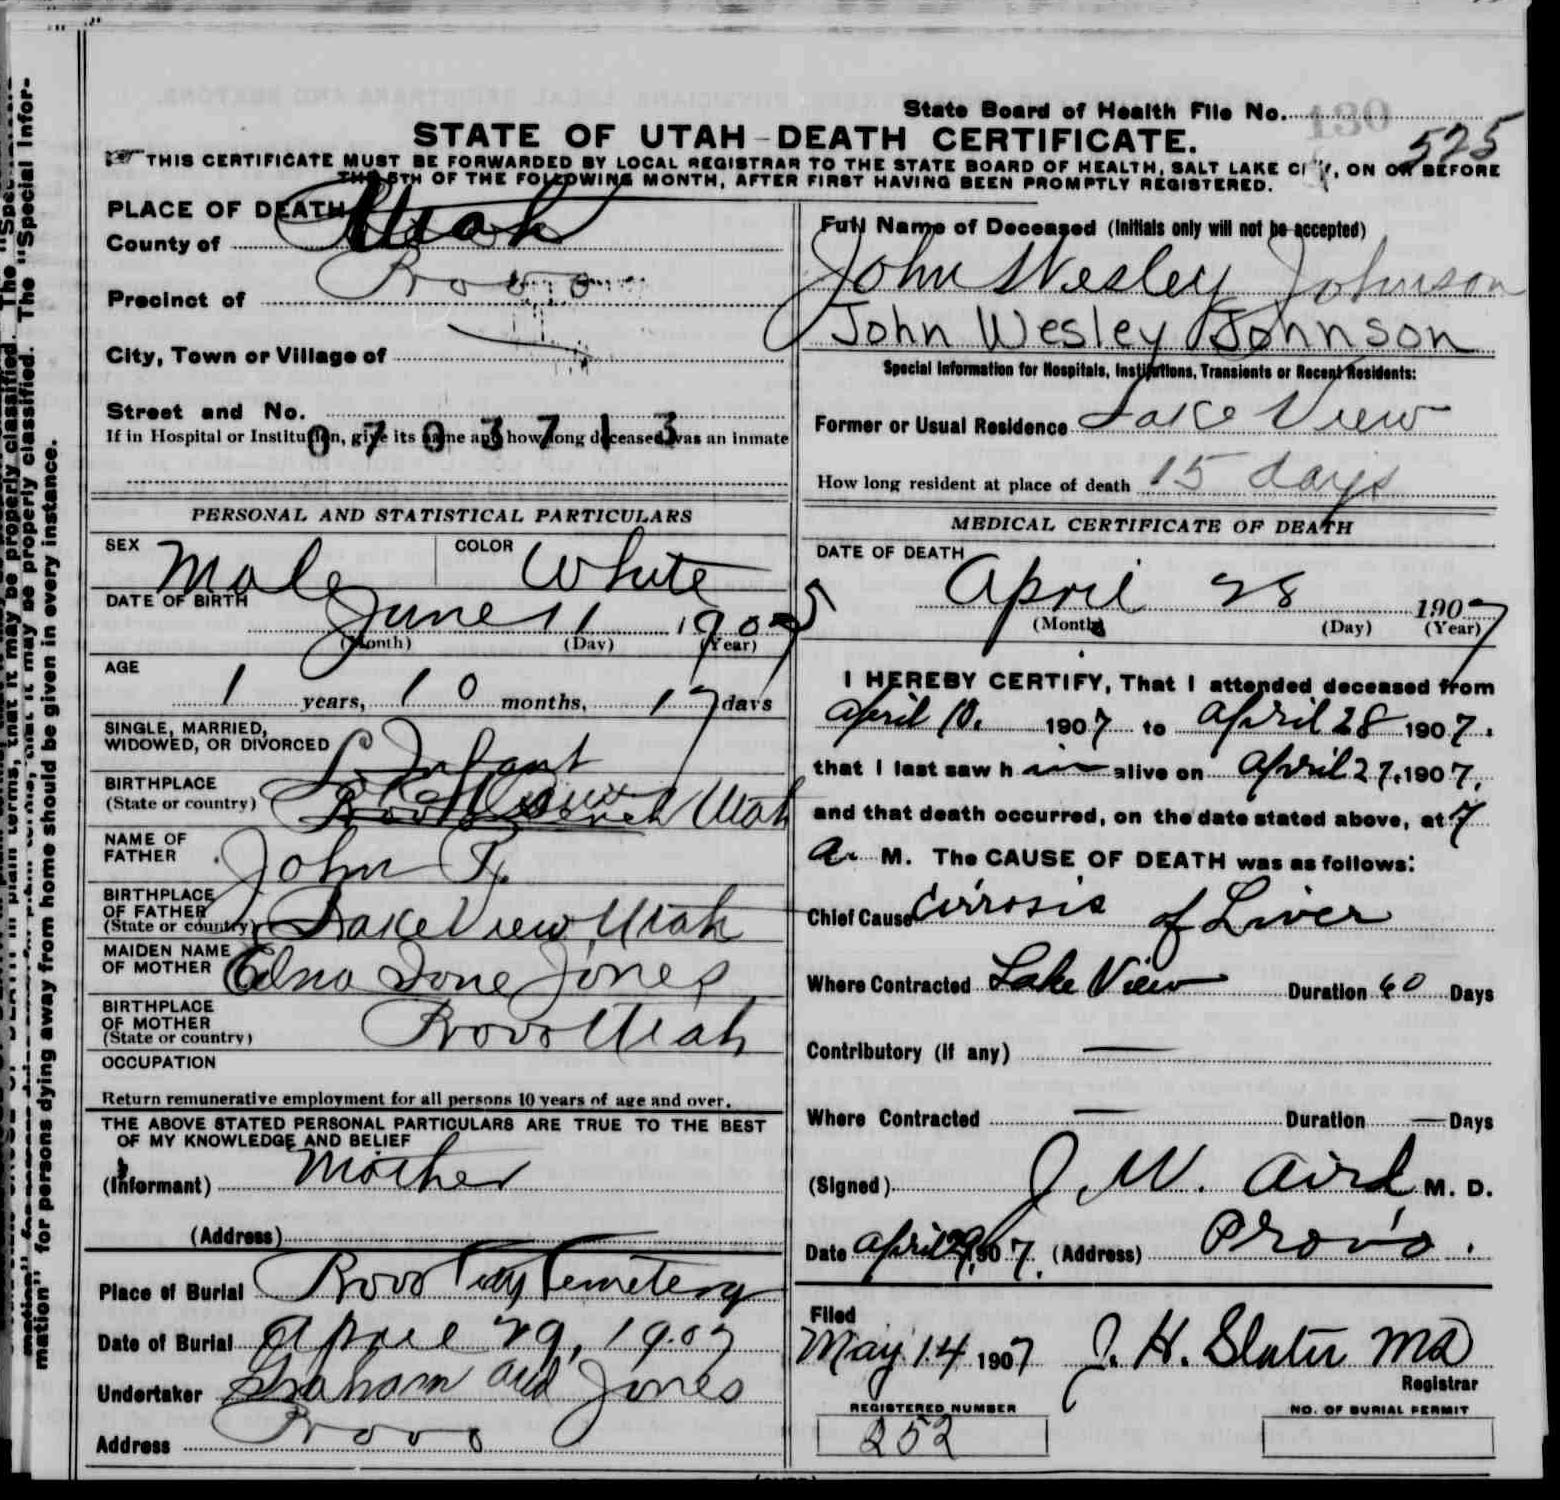 State Board of Health File No. 130
525
STATE OF UTAH-DEATH CERTIFICATE.
THIS CERTIFICATE MUST BE FORWARDED BY LOCAL REGISTRAR TO THE STATE BOARD OF HEALTH, SALT LAKE CITY, ON OR BEFORE
THE 5TH OF THE FOLLOWING MONTH, AFTER FIRST HAVING BEEN PROMPTLY REGISTERED.
PLACE OF DEATH
County of Utah
Precinct of Provo
City, Town or Village of
Street and No.
0703713
If in Hospital or Institution, give its name and how long deceased was an inmate
Full Name of Deceased (Initials only will not be accepted)
John Wesley Johnson
John Wesley Johnson
Special Information for Hospitals, Institutions, Transients or Recent Residents:
Former or Usual Residence Lake View
How long resident at place of death 15 days
PERSONAL AND STATISTICAL PARTICULARS
SEX Male COLOR White
DATE OF BIRTH
June 11 1905
(Month) (Day) (Year)
AGE
1 years, 10 months, 17 days
SINGLE, MARRIED,
WIDOWED, OR DIVORCED Infant
BIRTHPLACE
(State or country) Lake View Utah
NAME OF
FATHER John R.
BIRTHPLACE
OF FATHER
(State or country) Lake View, Utah
MAIDEN NAME
OF MOTHER Edna Jones
BIRTHPLACE
OF MOTHER
(State or country) Provo Utah
OCCUPATION
Return remunerative employment for all persons 10 years of age and over.
THE ABOVE STATED PERSONAL PARTICULARS ARE TRUE TO THE BEST
OF MY KNOWLEDGE AND BELIEF
(Informant) Mother
(Address)
Place of Burial Provo City Cemetery
Date of Burial April 29, 1907
Undertaker Graham and Jones
Address Provo
MEDICAL CERTIFICATE OF DEATH
DATE OF DEATH
April 28 1907
(Month) (Day) (Year)
I HEREBY CERTIFY, That I attended deceased from
April 10. 1907 to April 28 1907.
that I last saw h im alive on April 27, 1907,
and that death occurred, on the date stated above, at 7
a. M. The CAUSE OF DEATH was as follows:
Chief Cause Cirrosis of Liver
Where Contracted Lake View Duration 60 Days
Contributory (if any) —
Where Contracted — Duration — Days
(Signed) J. W. Aird M. D.
Date April 29, 1907. (Address) Provo.
Filed
May 14 1907 J. H. Slater MD
Registrar
REGISTERED NUMBER
252
NO. OF BURIAL PERMIT
mation" for persons dying away from home should be given in every instance.